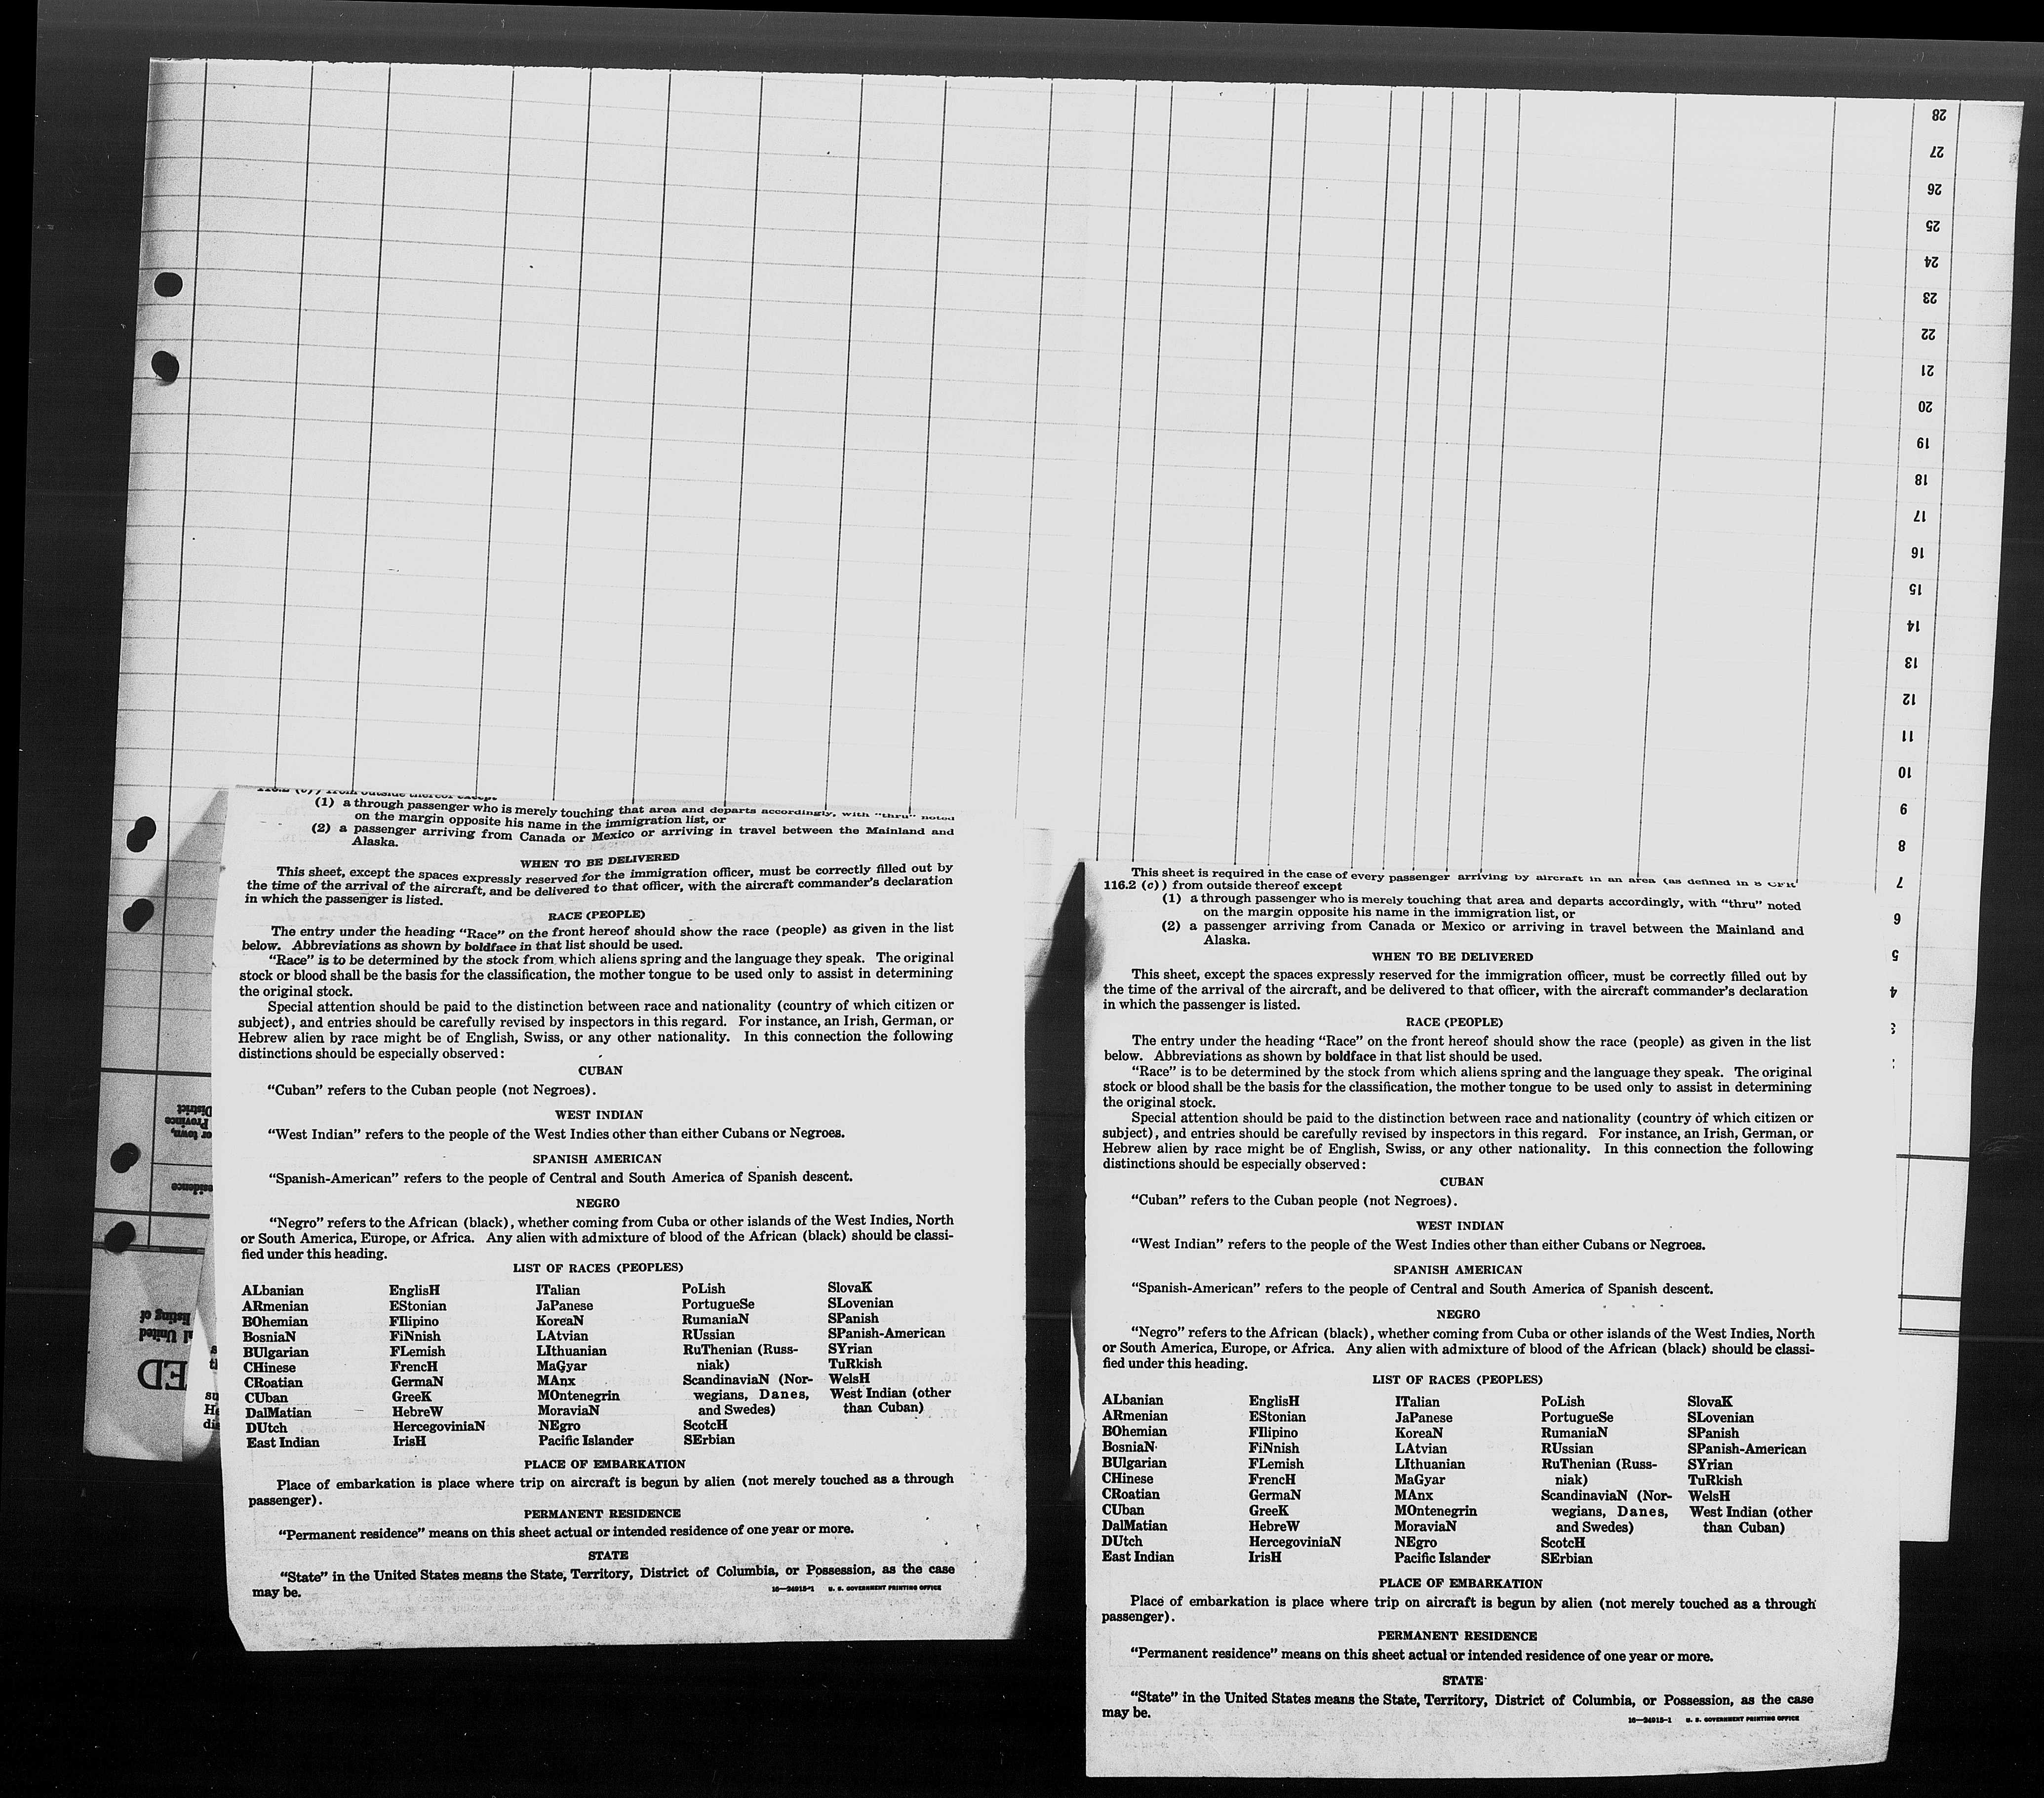 116.2 (c)) from outside thereof except
(1) a through passenger who is merely touching that area and departs accordingly, with "thru" noted
on the margin opposite his name in the immigration list, or
(2) a passenger arriving from Canada or Mexico or arriving in travel between the Mainland and
Alaska.
WHEN TO BE DELIVERED
This sheet, except the spaces expressly reserved for the immigration officer, must be correctly filled out by
the time of the arrival of the aircraft, and be delivered to that officer, with the aircraft commander's declaration
in which the passenger is listed.
RACE (PEOPLE)
The entry under the heading "Race" on the front hereof should show the race (people) as given in the list
below. Abbreviations as shown by boldface in that list should be used.
"Race" is to be determined by the stock from which aliens spring and the language they speak. The original
stock or blood shall be the basis for the classification, the mother tongue to be used only to assist in determining
the original stock.
Special attention should be paid to the distinction between race and nationality (country of which citizen or
subject), and entries should be carefully revised by inspectors in this regard. For instance, an Irish, German, or
Hebrew alien by race might be of English, Swiss, or any other nationality. In this connection the following
distinctions should be especially observed:
CUBAN
"Cuban" refers to the Cuban people (not Negroes).
WEST INDIAN
"West Indian" refers to the people of the West Indies other than either Cubans or Negroes.
SPANISH AMERICAN
"Spanish-American" refers to the people of Central and South America of Spanish descent.
NEGRO
"Negro" refers to the African (black), whether coming from Cuba or other islands of the West Indies, North
or South America, Europe, or Africa. Any alien with admixture of blood of the African (black) should be classi-
fied under this heading.
LIST OF RACES (PEOPLES)
ALbanian
ARmenian
BOhemian
BosniaN
BUlgarian
CHinese
CRoatian
CUban
DalMatian
DUtch
East Indian
EnglisH
EStonian
FIlipino
FiNnish
FLemish
FrencH
GermaN
GreeK
HebreW
HercegoviniaN
IrisH
ITalian
JaPanese
KoreaN
LAtvian
LIthuanian
MaGyar
MAnx
MOntenegrin
MoraviaN
NEgro
Pacific Islander
PoLish
PortugueSe
RumaniaN
RUssian
RuThenian (Russ-
niak)
ScandinaviaN (Nor-
wegians, Danes,
and Swedes)
ScotcH
SErbian
SlovaK
SLovenian
SPanish
SPanish-American
SYrian
TuRkish
WelsH
West Indian (other
than Cuban)
PLACE OF EMBARKATION
Place of embarkation is place where trip on aircraft is begun by alien (not merely touched as a through
passenger).
PERMANENT RESIDENCE
"Permanent residence" means on this sheet actual or intended residence of one year or more.
STATE
"State" in the United States means the State, Territory, District of Columbia, or Possession, as the case
may be.
16—24915-1 U. S. GOVERNMENT PRINTING OFFICE
This sheet is required in the case of every passenger arriving by aircraft in an area (as defined in 8 CFR
116.2 (c)) from outside thereof except
(1) a through passenger who is merely touching that area and departs accordingly, with "thru" noted
on the margin opposite his name in the immigration list, or
(2) a passenger arriving from Canada or Mexico or arriving in travel between the Mainland and
Alaska.
WHEN TO BE DELIVERED
This sheet, except the spaces expressly reserved for the immigration officer, must be correctly filled out by
the time of the arrival of the aircraft, and be delivered to that officer, with the aircraft commander's declaration
in which the passenger is listed.
RACE (PEOPLE)
The entry under the heading "Race" on the front hereof should show the race (people) as given in the list
below. Abbreviations as shown by boldface in that list should be used.
"Race" is to be determined by the stock from which aliens spring and the language they speak. The original
stock or blood shall be the basis for the classification, the mother tongue to be used only to assist in determining
the original stock.
Special attention should be paid to the distinction between race and nationality (country of which citizen or
subject), and entries should be carefully revised by inspectors in this regard. For instance, an Irish, German, or
Hebrew alien by race might be of English, Swiss, or any other nationality. In this connection the following
distinctions should be especially observed:
CUBAN
"Cuban" refers to the Cuban people (not Negroes).
WEST INDIAN
"West Indian" refers to the people of the West Indies other than either Cubans or Negroes.
SPANISH AMERICAN
"Spanish-American" refers to the people of Central and South America of Spanish descent.
NEGRO
"Negro" refers to the African (black), whether coming from Cuba or other islands of the West Indies, North
or South America, Europe, or Africa. Any alien with admixture of blood of the African (black) should be classi-
fied under this heading.
LIST OF RACES (PEOPLES)
ALbanian
ARmenian
BOhemian
BosniaN
BUlgarian
CHinese
CRoatian
CUban
DalMatian
DUtch
East Indian
EnglisH
EStonian
FIlipino
FiNnish
FLemish
FrencH
GermaN
GreeK
HebreW
HercegoviniaN
IrisH
ITalian
JaPanese
KoreaN
LAtvian
LIthuanian
MaGyar
MAnx
MOntenegrin
MoraviaN
NEgro
Pacific Islander
PoLish
PortugueSe
RumaniaN
RUssian
RuThenian (Russ-
niak)
ScandinaviaN (Nor-
wegians, Danes,
and Swedes)
ScotcH
SErbian
SlovaK
SLovenian
SPanish
SPanish-American
SYrian
TuRkish
WelsH
West Indian (other
than Cuban)
PLACE OF EMBARKATION
Place of embarkation is place where trip on aircraft is begun by alien (not merely touched as a through
passenger).
PERMANENT RESIDENCE
"Permanent residence" means on this sheet actual or intended residence of one year or more.
STATE
"State" in the United States means the State, Territory, District of Columbia, or Possession, as the case
may be.
16—24915-1 U. S. GOVERNMENT PRINTING OFFICE
28
27
26
25
24
23
22
21
20
19
18
17
16
15
14
13
12
11
10
9
8
7
6
5
4
or town,
Province
District
listing of
United
ED